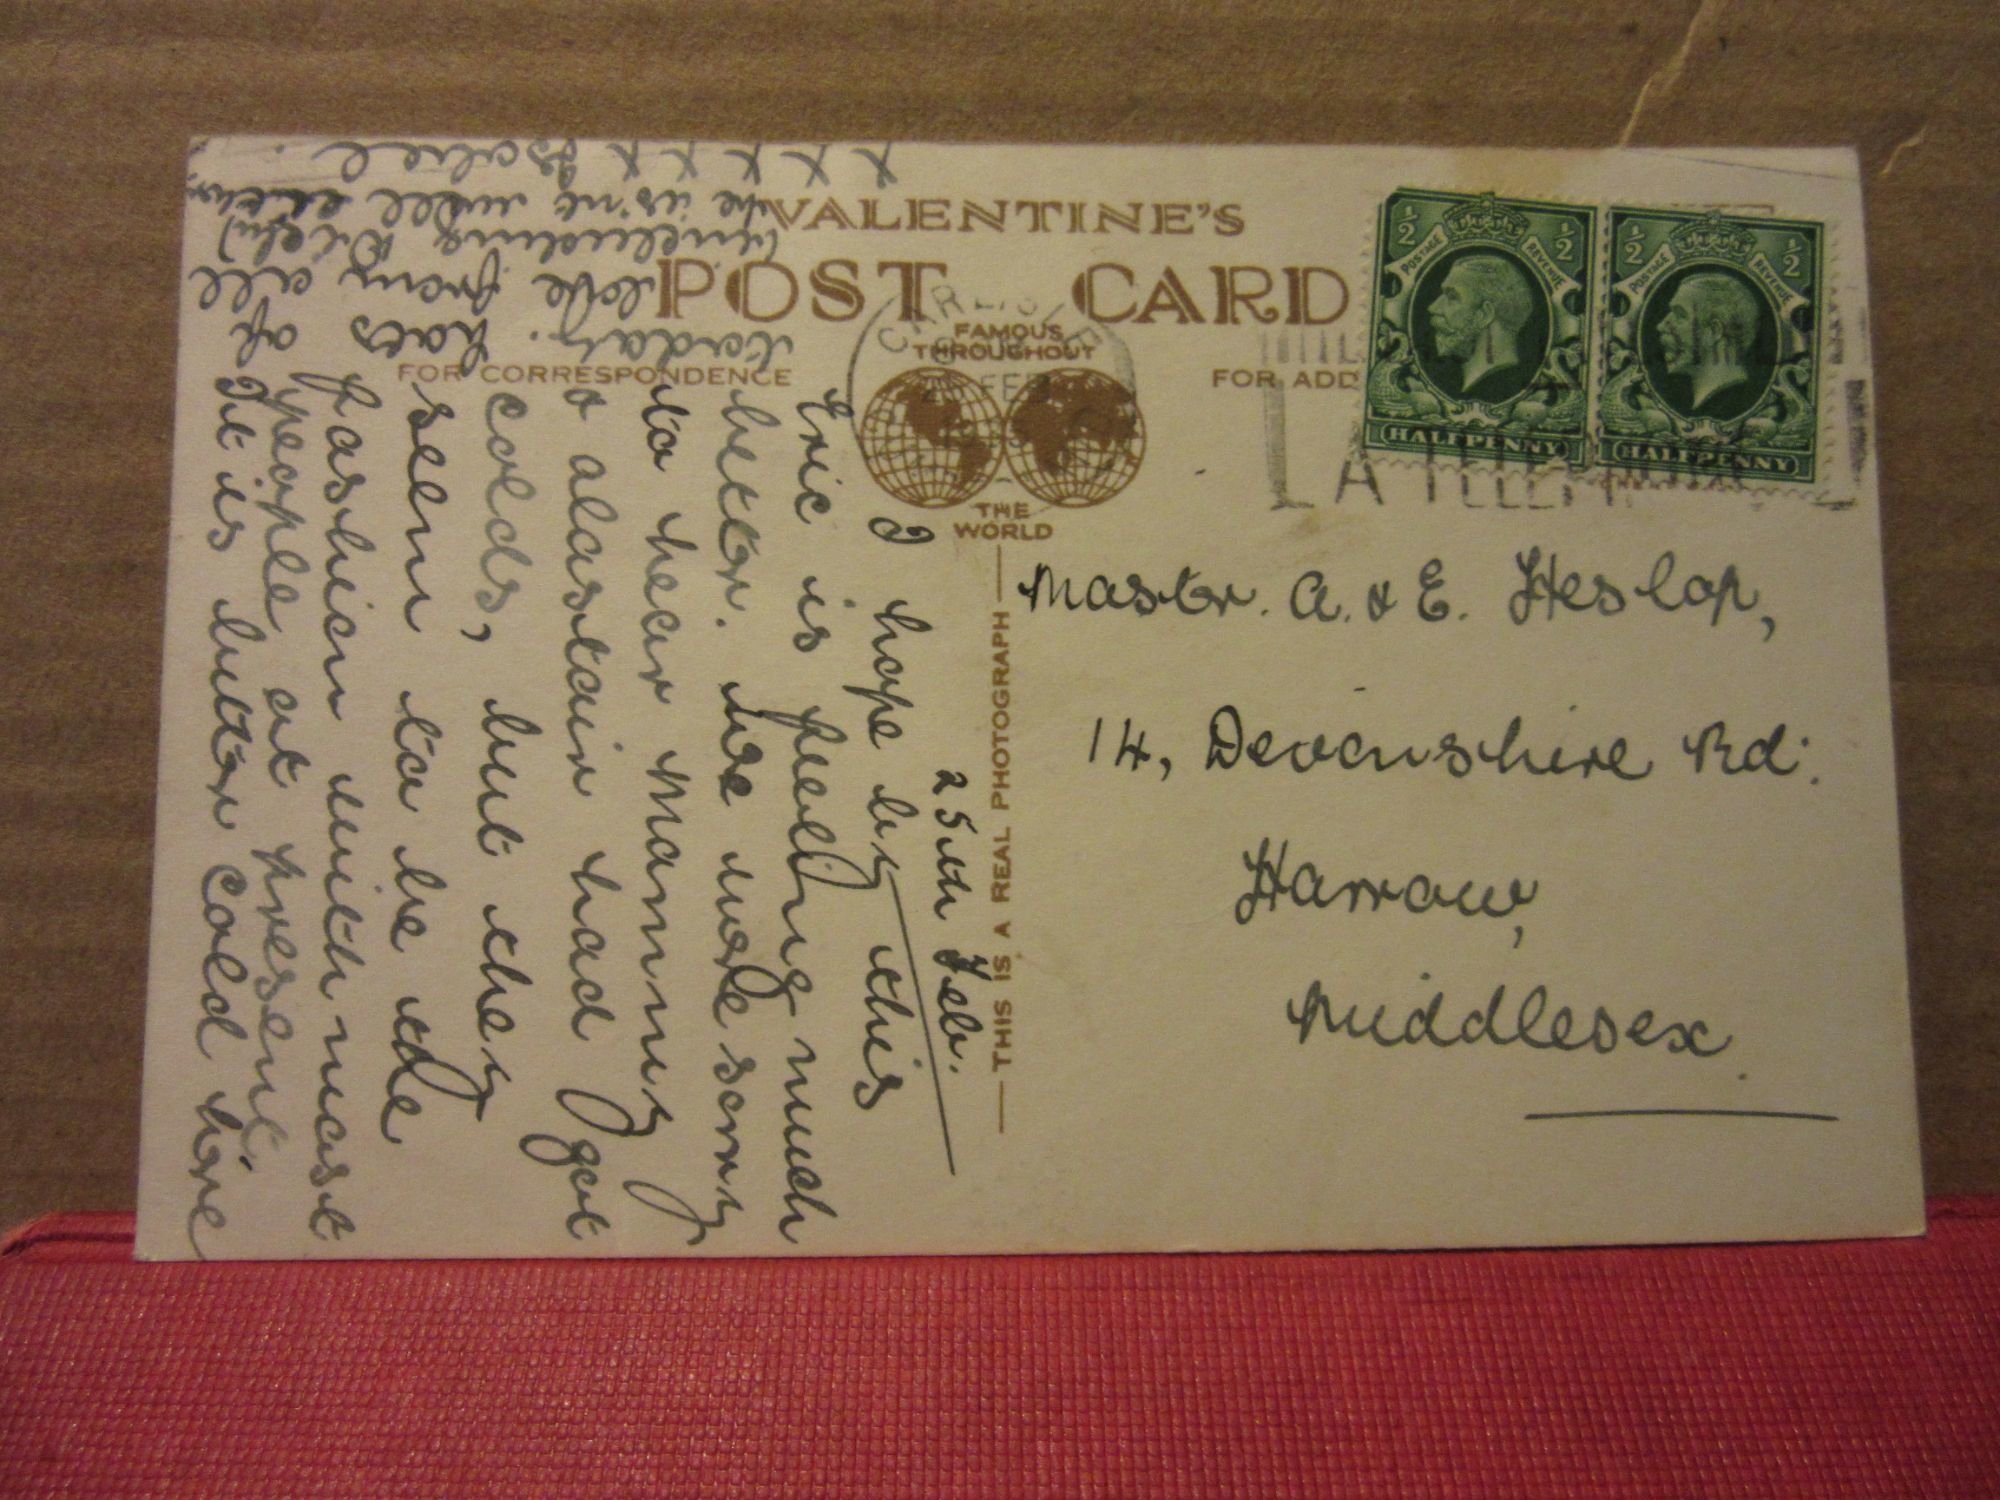 VALENTINE'S
POST CARD
FAMOUS
THROUGHOUT
THE
WORLD
FOR CORRESPONDENCE
FOR ADD
THIS IS A REAL PHOTOGRAPH
POSTAGE REVENUE
½ ½
HALFPENNY
POSTAGE REVENUE
½ ½
HALFPENNY
FEB
A TELEPHONE
Master. A. & E. Heslop,
14, Devonshire Rd:
Harrow,
Middlesex
25th Feb.
I hope by this
Eric is feeling much
better. We were sorry
to hear Mammy
& Alastair had got
colds, but they
seem to be the
fashion with most
people at present.
It is bitter cold here
today.
love from
of all
x x x x x